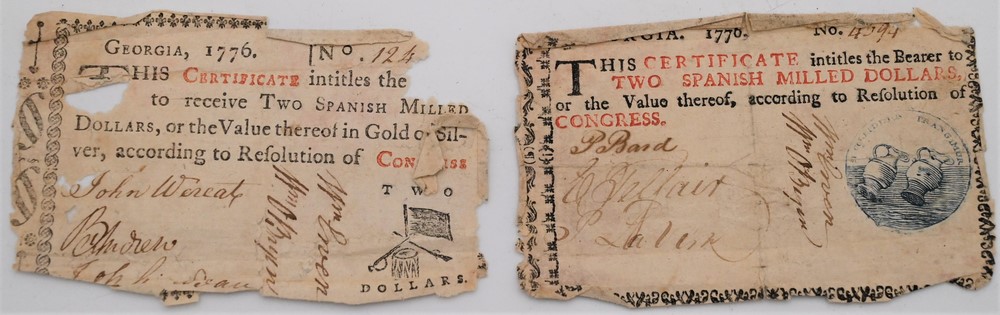 GEORGIA, 1776. No. 124
THIS CERTIFICATE intitles the
to receive TWO SPANISH MILLED
DOLLARS, or the Value thereof in Gold or Sil-
ver, according to Resolution of CONGRESS
TWO
DOLLARS.
John Wereat
Wm O'Bryen
ORGIA. 1776. No. 4394
THIS CERTIFICATE intitles the Bearer to
TWO SPANISH MILLED DOLLARS,
or the Value thereof, according to Resolution of
CONGRESS.
P Bard
Wm O'Bryen